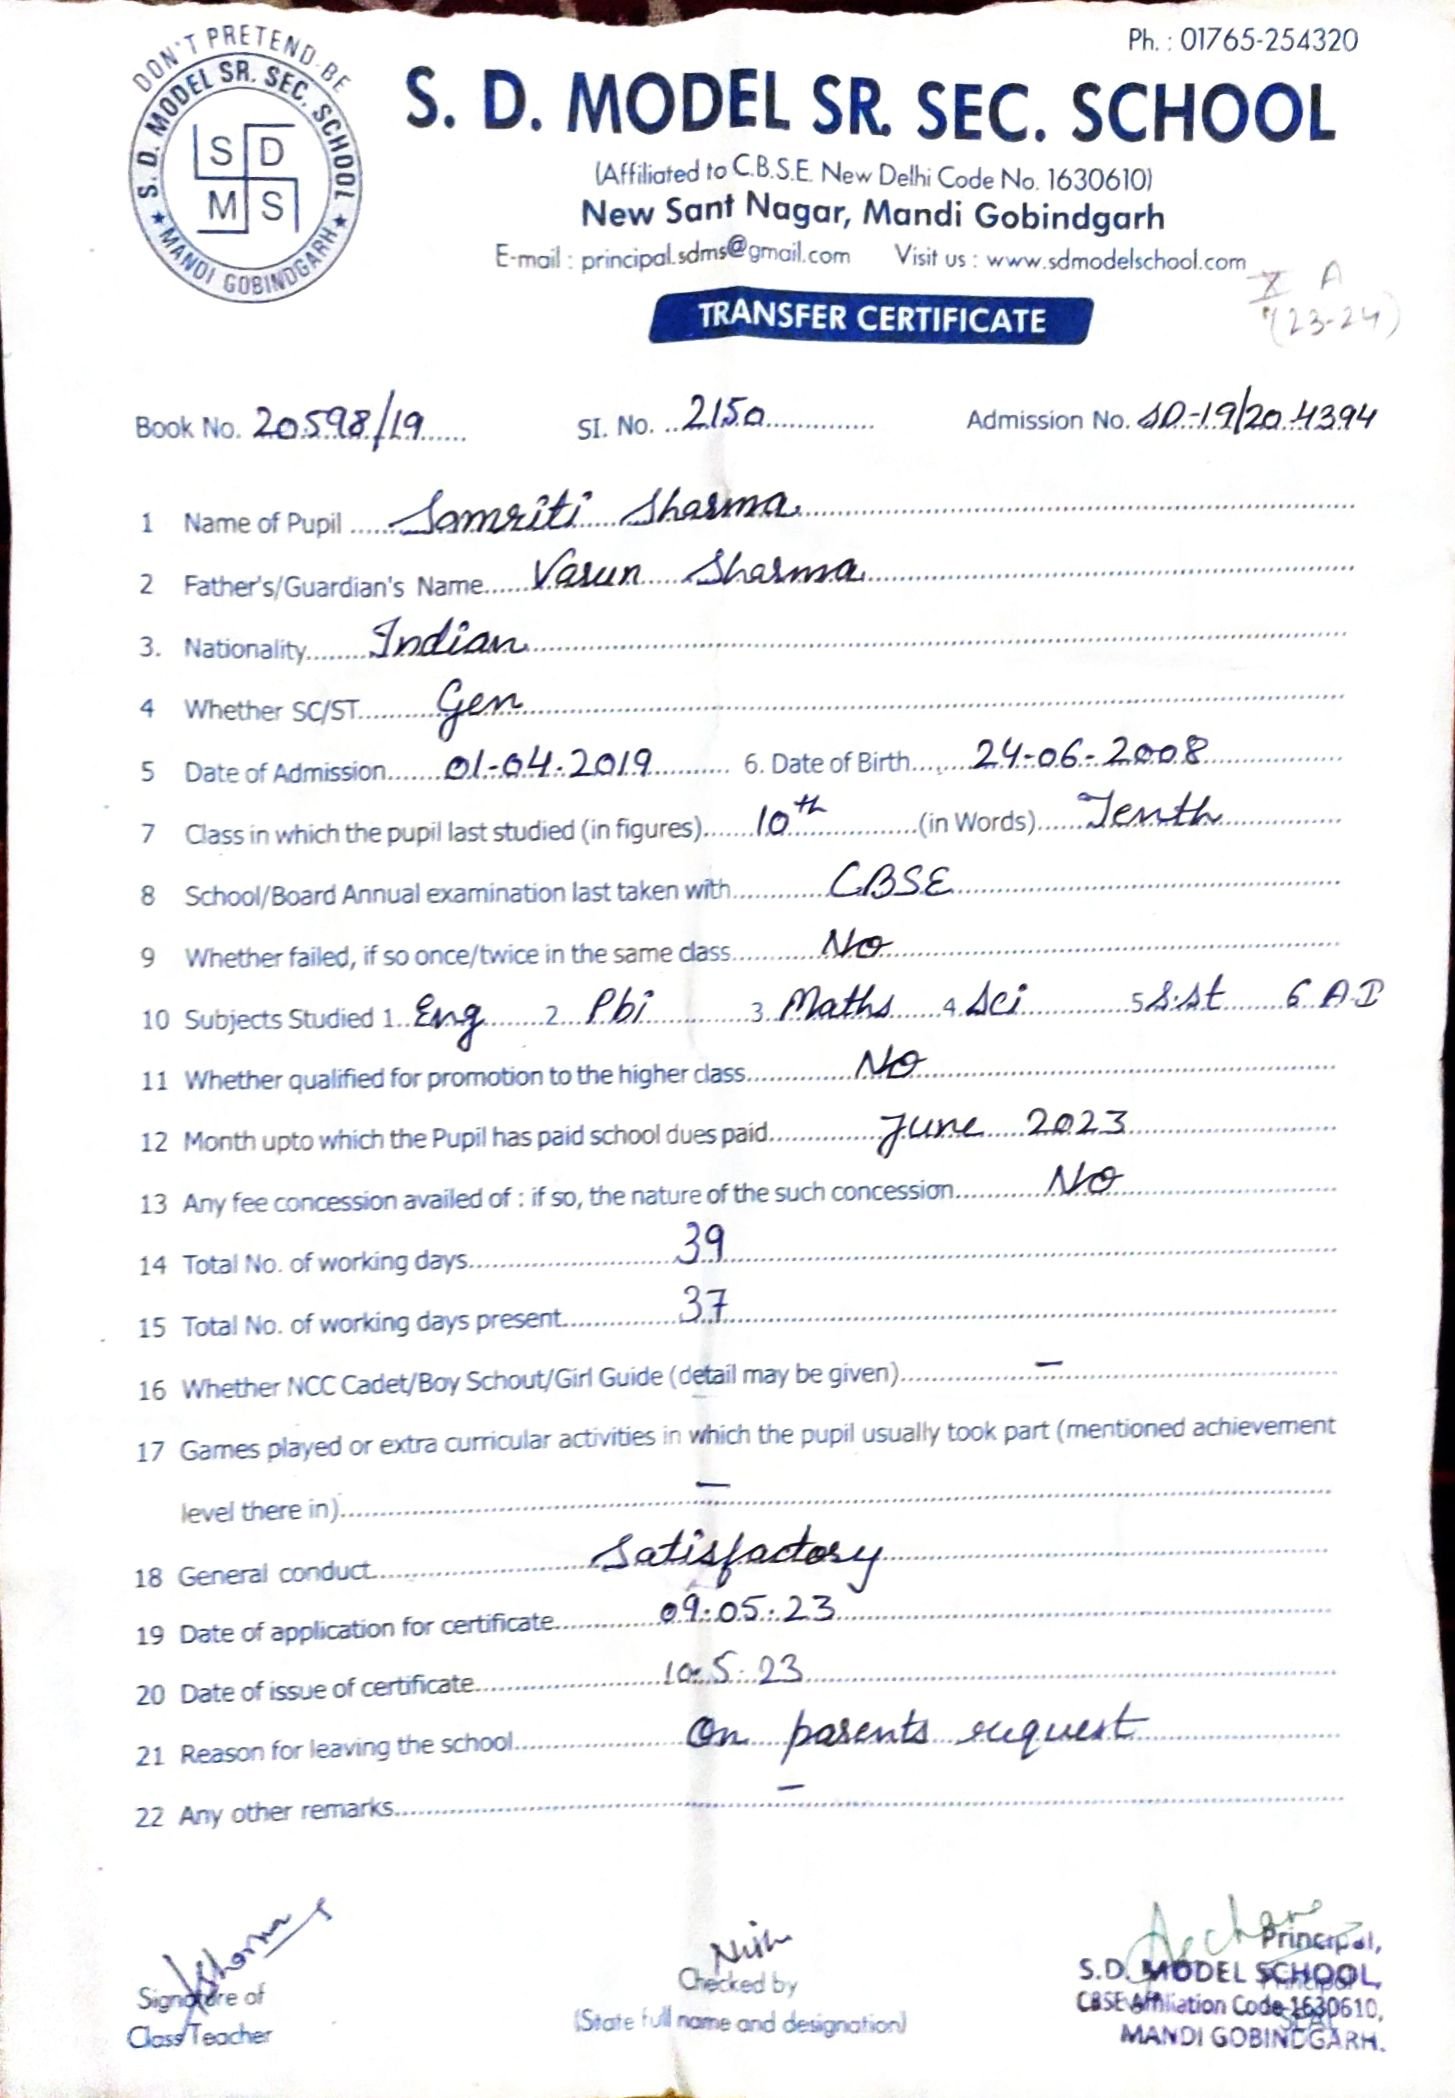 Ph. : 01765-254320
DON'T PRETEND-BE
S. D. MODEL SR. SEC. SCHOOL
★ MANDI GOBINDGARH ★
S D
M S
S. D. MODEL SR. SEC. SCHOOL
(Affiliated to C.B.S.E. New Delhi Code No. 1630610)
New Sant Nagar, Mandi Gobindgarh
E-mail : principal.sdms@gmail.com Visit us : www.sdmodelschool.com
X A
(23-24)
TRANSFER CERTIFICATE
Book No. 20598/19 SI. No. 2150 Admission No. SD-19/20-4394
1 Name of Pupil Samriti Sharma
2 Father's/Guardian's Name Varun Sharma
3. Nationality Indian
4 Whether SC/ST Gen
5 Date of Admission 01-04-2019 6. Date of Birth 24-06-2008
7 Class in which the pupil last studied (in figures) 10th (in Words) Tenth
8 School/Board Annual examination last taken with CBSE
9 Whether failed, if so once/twice in the same class No
10 Subjects Studied 1. Eng 2. Pbi 3. Maths 4. Sci 5 S.St 6 A.I
11 Whether qualified for promotion to the higher class No
12 Month upto which the Pupil has paid school dues paid June 2023
13 Any fee concession availed of : if so, the nature of the such concession No
14 Total No. of working days 39
15 Total No. of working days present 37
16 Whether NCC Cadet/Boy Schout/Girl Guide (detail may be given) –
17 Games played or extra curricular activities in which the pupil usually took part (mentioned achievement
level there in) –
18 General conduct Satisfactory
19 Date of application for certificate 09.05.23
20 Date of issue of certificate 10.5.23
21 Reason for leaving the school On parents request
22 Any other remarks –
Sharma
Signature of
Class Teacher
Checked by
(State full name and designation)
Principal,
S.D. MODEL SCHOOL,
CBSE Affiliation Code-1630610,
MANDI GOBINDGARH.